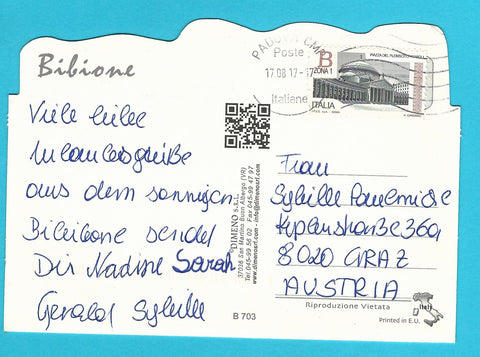 Bibione
Viele liebe
Urlaubsgrüße
aus dem sonnigen
Bibione sendet
Dir Nadine Sarah
Gerald Sybille
PADOVA CMP
Poste
17.08.17-17
Italiane
PIAZZA DEL PLEBISCITO
B
ZONA 1
ITALIA
DIMENO s.r.l.
37036 San Martino Buon Albergo (VR)
Tel. 045-99 56 02 - Fax 045-99 47 97
www.dimenosrl.com - info@dimenosrl.com
B 703
Frau
Sybille
Keplerstraße 36a
8020 GRAZ
AUSTRIA
Riproduzione Vietata
Printed in E.U.